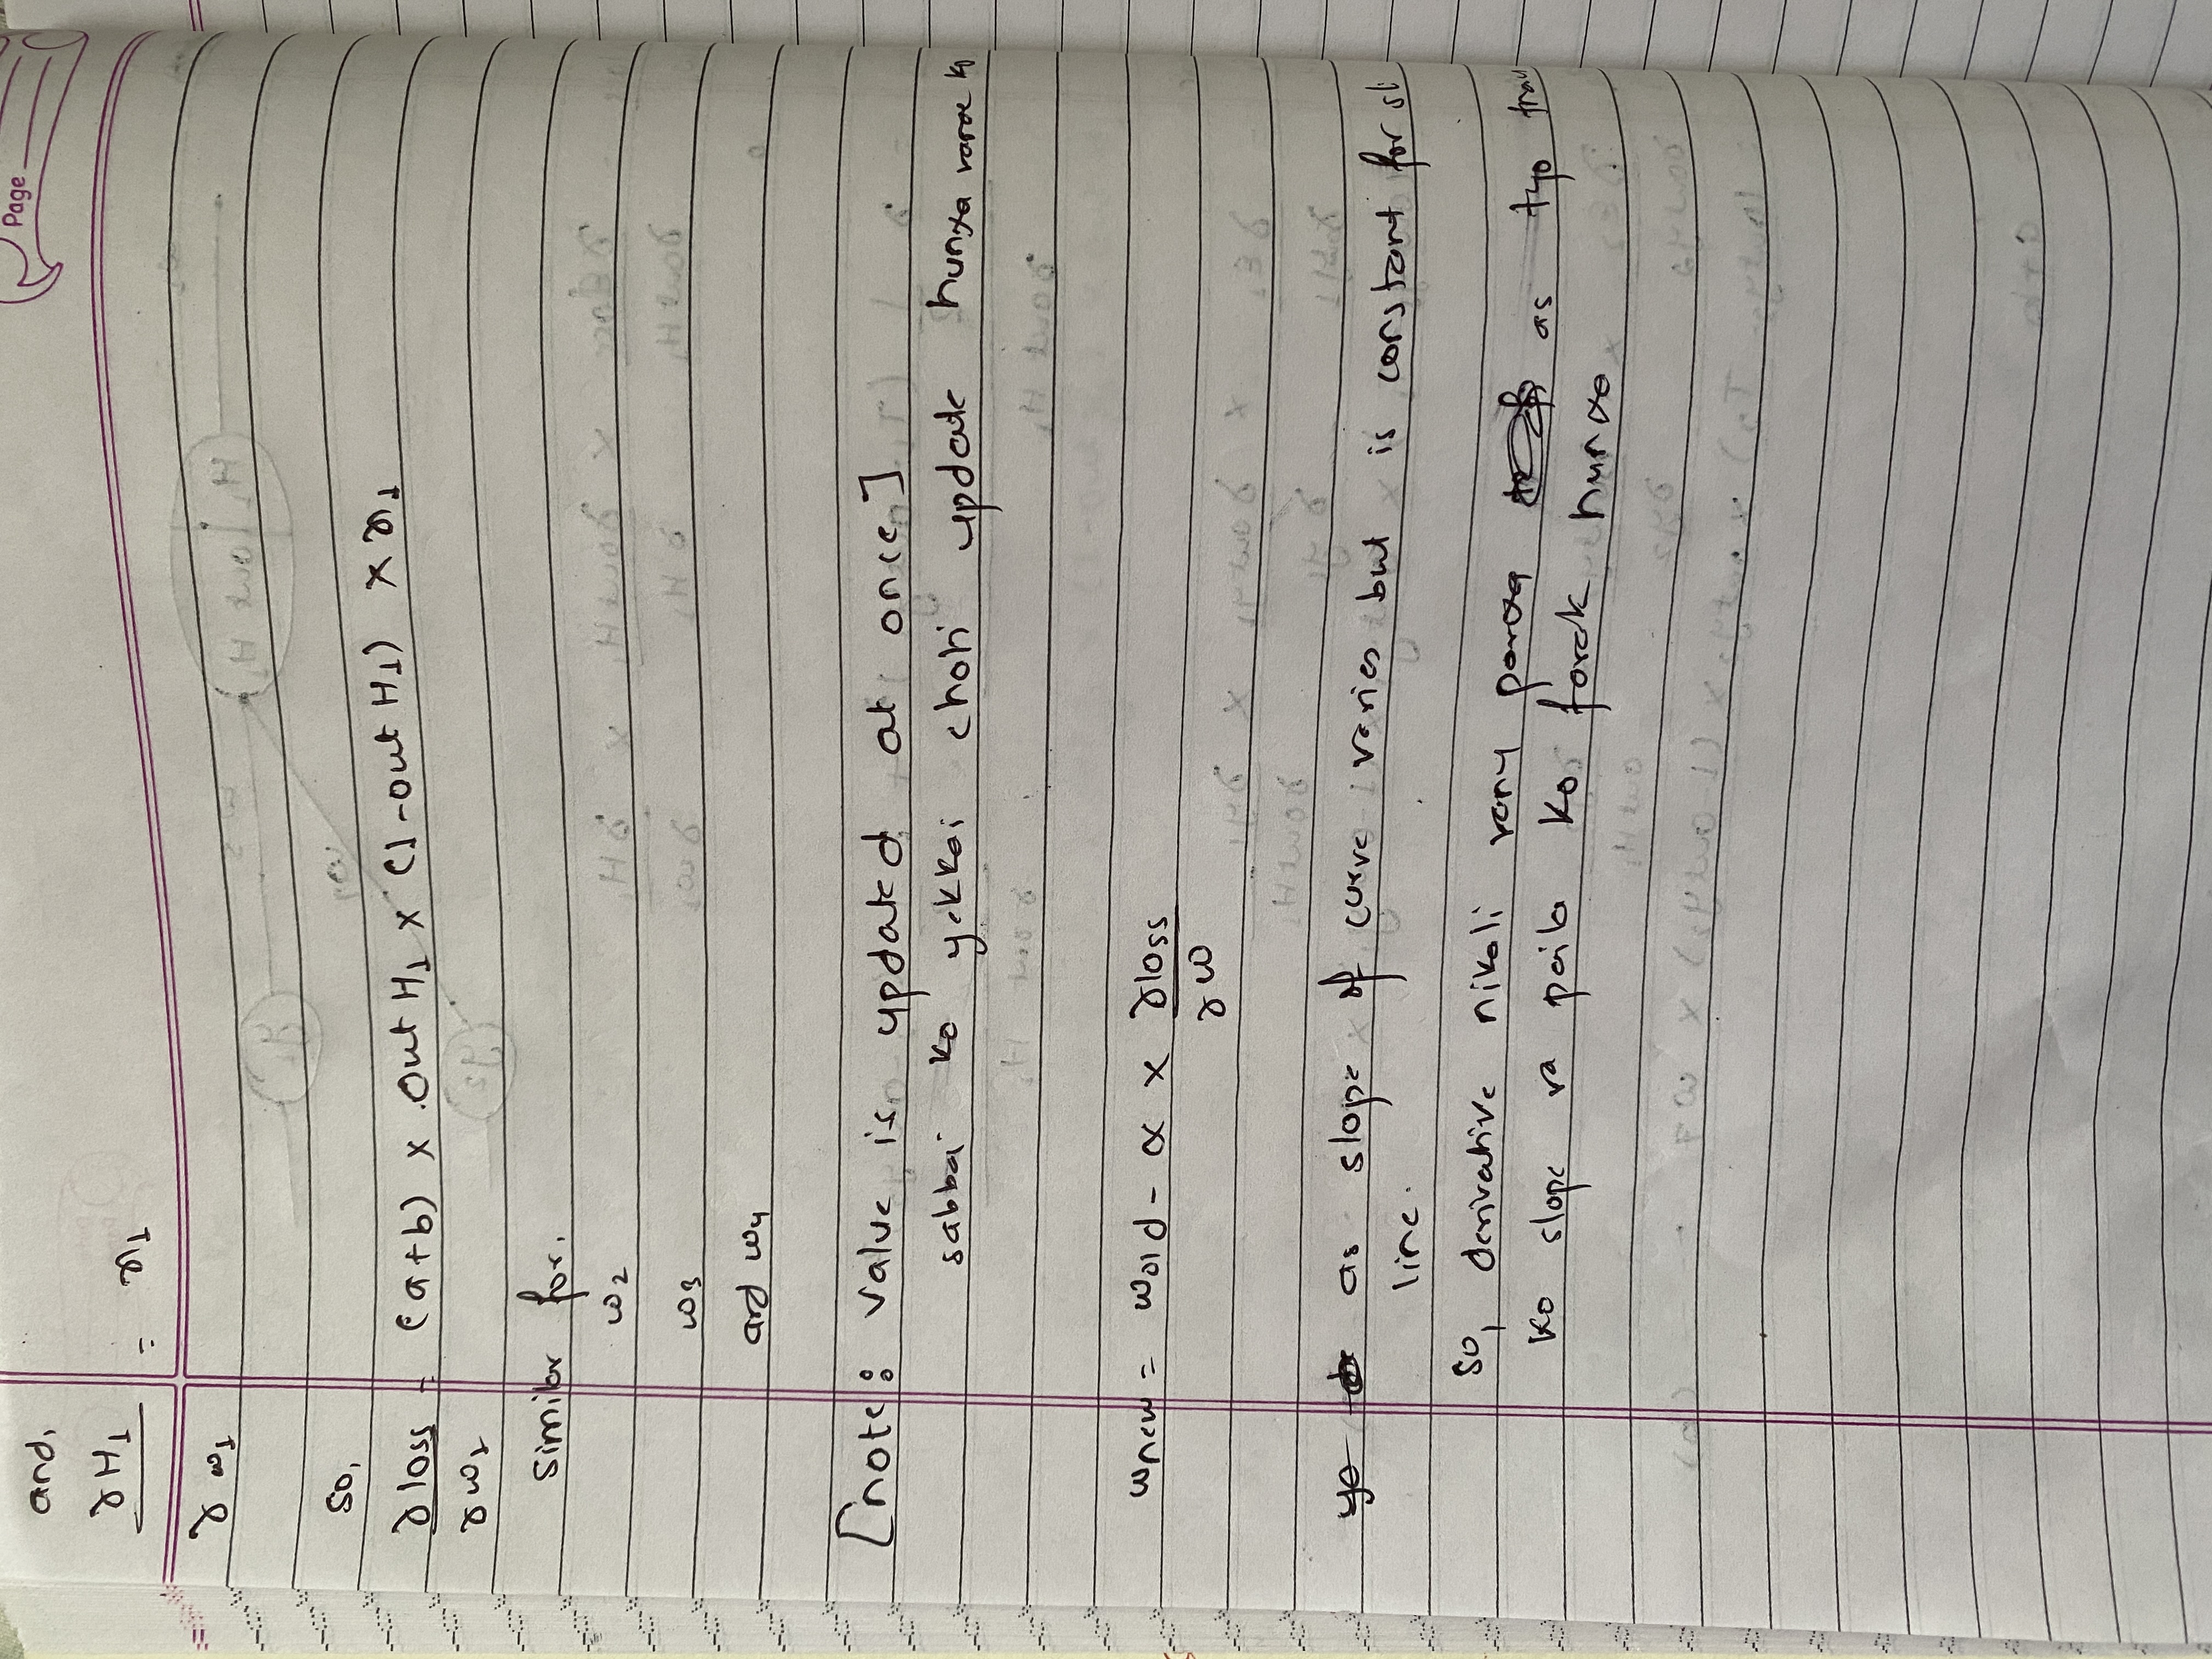 Page
and,
∂H1
= x1
∂w1
so,
∂loss = (a+b) x out H1 x (1-out H1) x x1
∂w1
Similar for,
w2
w3
and w4
[note: value is updated at once]
sabbai ko yekkai choti update hunxa vanae ko
wnew = wold - α x ∂loss
∂w
as slope of curve varies but is constant for st
line.
so, derivative nikali vany parxa as tyo
ko slope ra paila ko farak hunxa